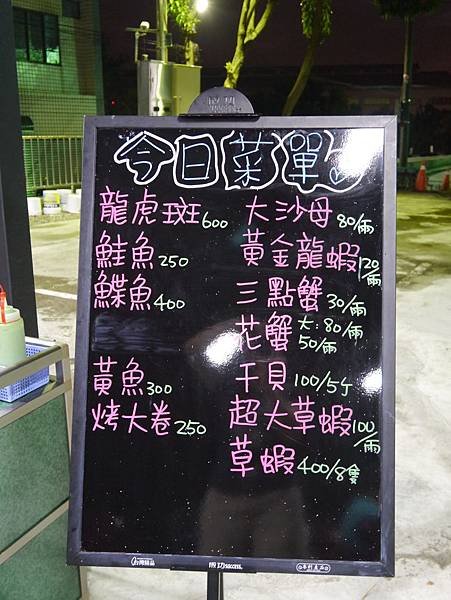 今日菜單
龍虎斑600
鮭魚250
鰈魚400
黃魚300
烤大卷250
大沙母80/兩
黃金龍蝦120/兩
三點蟹30/兩
花蟹大:80/兩
50/兩
干貝100/5个
超大草蝦100/兩
草蝦400/8隻
success